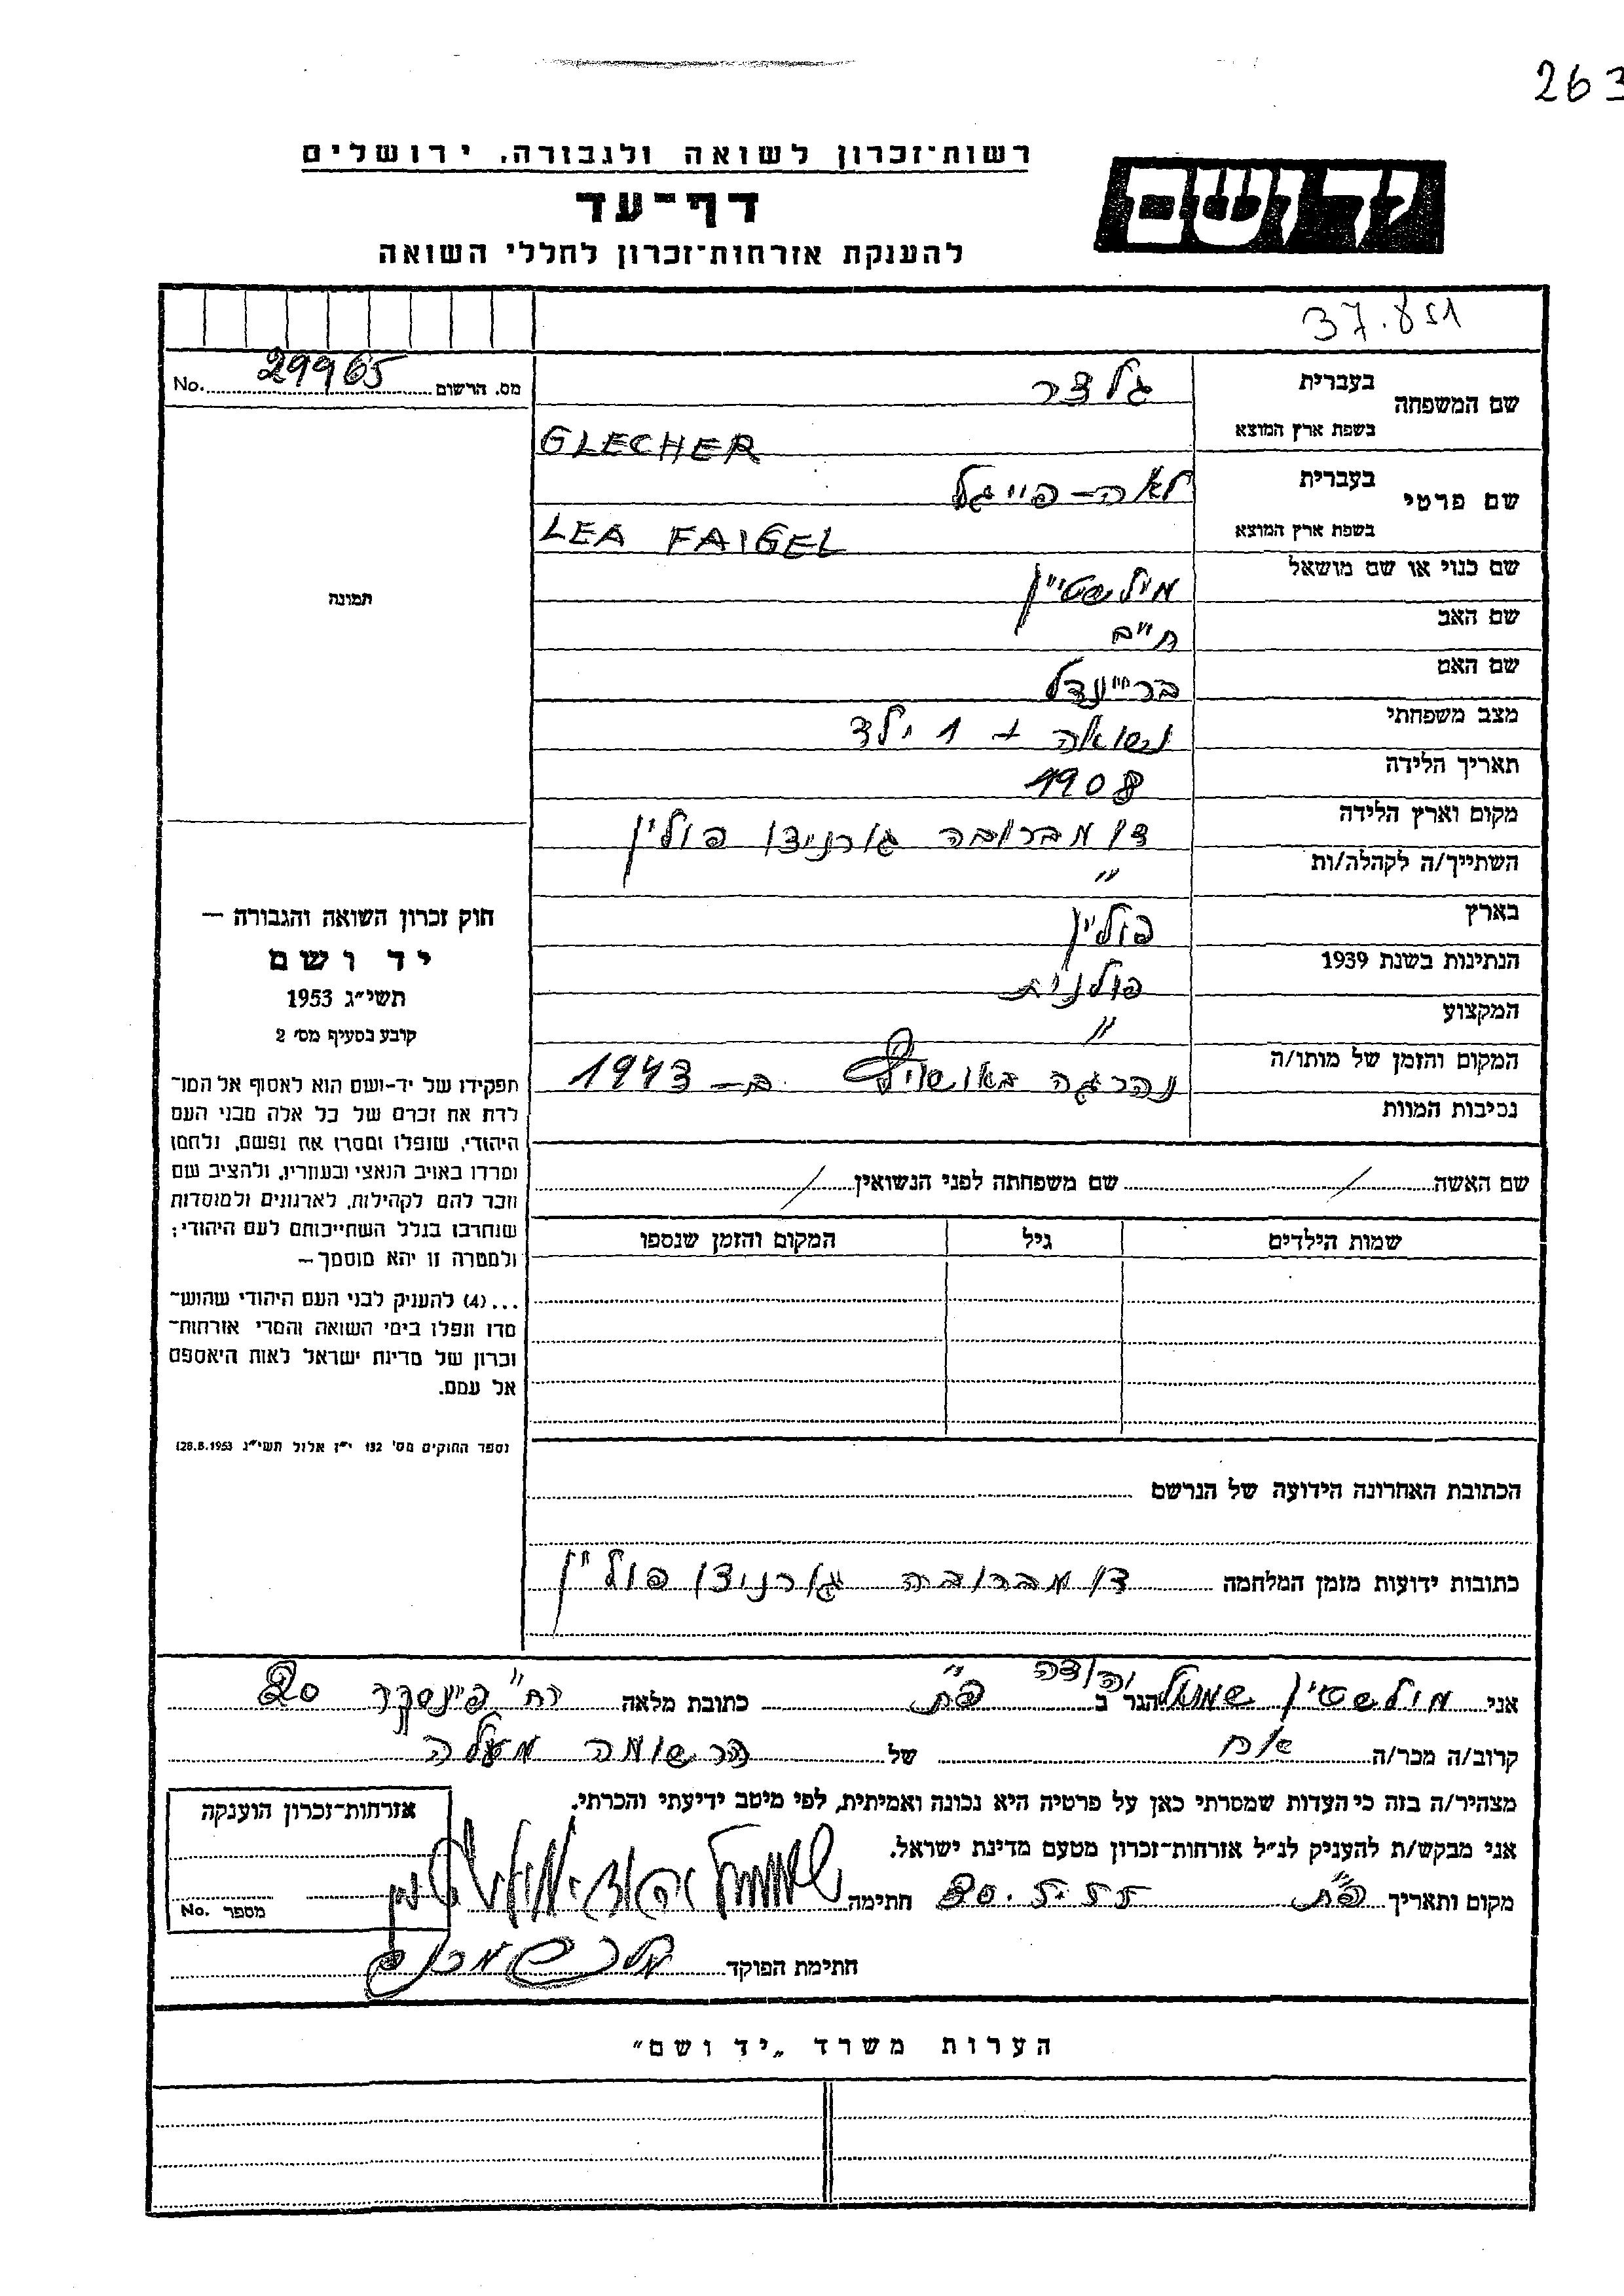 263
רשות־זכרון לשואה ולגבורה, ירושלים
יד ושם
דף־עד
להענקת אזרחות־זכרון לחללי השואה
מס. הרשום 29965 No.
שם המשפחה בעברית גלצר
בשפת ארץ המוצא GLECHER
שם פרטי בעברית לאה-פייגל
בשפת ארץ המוצא LEA FAIGEL
שם כנוי או שם מושאל מילשטיין
שם האב חיים
שם האם בריינדל
מצב משפחתי נשואה + 1 ילד
תאריך הלידה 1908
מקום וארץ הלידה דומברובה גורניצו פולין
השתייך/ה לקהלה/ות "
בארץ פולין
הנתינות בשנת 1939 פולנית
המקצוע "
המקום והזמן של מותו/ה נהרגה באושויץ ב- 1943
נסיבות המוות
תמונה
חוק זכרון השואה והגבורה —
יד ושם
תשי״ג 1953
קובע בסעיף מס׳ 2
תפקידו של יד-ושם הוא לאסוף אל המו־
לדת את זכרם של כל אלה מבני העם
היהודי, שנפלו ומסרו את נפשם, נלחמו
ומרדו באויב הנאצי ובעוזריו, ולהציב שם
וזכר להם לקהילות, לארגונים ולמוסדות
שנחרבו בגלל השתייכותם לעם היהודי;
ולמטרה זו יהא מוסמך —
...(4) להעניק לבני העם היהודי שהוש־
מדו ונפלו בימי השואה והמרי אזרחות־
זכרון של מדינת ישראל לאות היאספם
אל עמם.
(ספר החוקים מס׳ 132 י״ז אלול תשי״ג 28.8.1953)
שם האשה / שם משפחתה לפני הנשואין /
שמות הילדים גיל המקום והזמן שנספו
הכתובת האחרונה הידועה של הנרשם
כתובות ידועות מזמן המלחמה דומברוביה גורניצו פולין
אני מילשטיין שמואל יהודה הגר ב פ"ת כתובת מלאה רח" פינסקר 20
קרוב/ה מכר/ה אח של הרשומה מעלה
מצהיר/ה בזה כי העדות שמסרתי כאן על פרטיה היא נכונה ואמיתית, לפי מיטב ידיעתי והכרתי.
אני מבקש/ת להעניק לנ״ל אזרחות־זכרון מטעם מדינת ישראל.
מקום ותאריך פ"ת 20.5.55 חתימה שמואל יהודה מילשטיין
חתימת הפוקד
אזרחות־זכרון הוענקה
מספר No.
הערות משרד „יד ושם״